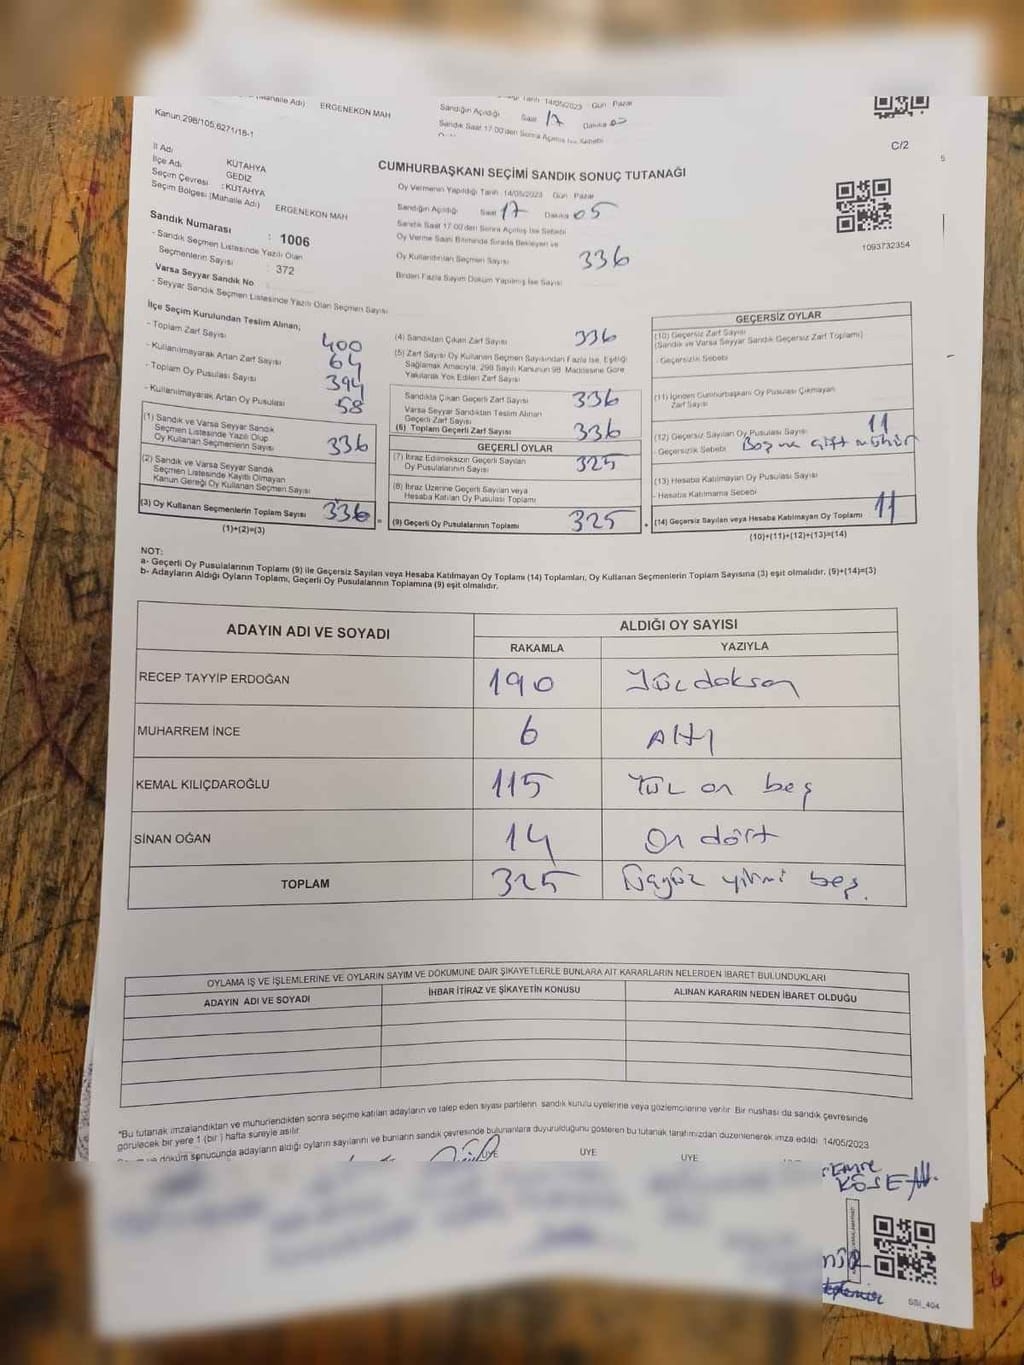 (Mahalle Adı) ERGENEKON MAH
Tarihi 14/05/2023 Gün Pazar
Sandığın Açıldığı Saat 17 Dakika 05
Sandık Saat 17:00'den Sonra Açılmış İse Sebebi
Kanun,298/105,6271/18-1
C/2
5
İl Adı : KÜTAHYA
İlçe Adı : GEDİZ
Seçim Çevresi : KÜTAHYA
Seçim Bölgesi (Mahalle Adı) ERGENEKON MAH
CUMHURBAŞKANI SEÇİMİ SANDIK SONUÇ TUTANAĞI
Oy Vermenin Yapıldığı Tarih 14/05/2023 Gün Pazar
Sandığın Açıldığı Saat 17 Dakika 05
Sandık Saat 17:00'den Sonra Açılmış İse Sebebi
Oy Verme Saati Bitiminde Sırada Bekleyen ve
Oy Kullandırılan Seçmen Sayısı 336
Birden Fazla Sayım Döküm Yapılmış İse Sayısı
1093732354
Sandık Numarası : 1006
- Sandık Seçmen Listesinde Yazılı Olan
Seçmenlerin Sayısı : 372
Varsa Seyyar Sandık No
- Seyyar Sandık Seçmen Listesinde Yazılı Olan Seçmen Sayısı
İlçe Seçim Kurulundan Teslim Alınan;
- Toplam Zarf Sayısı 400
- Kullanılmayarak Artan Zarf Sayısı 64
- Toplam Oy Pusulası Sayısı 394
- Kullanılmayarak Artan Oy Pusulası 58
(1) Sandık ve Varsa Seyyar Sandık
Seçmen Listesinde Yazılı Olup
Oy Kullanan Seçmenlerin Sayısı 336
(2) Sandık ve Varsa Seyyar Sandık
Seçmen Listesinde Kayıtlı Olmayan
Kanun Gereği Oy Kullanan Seçmen Sayısı
(3) Oy Kullanan Seçmenlerin Toplam Sayısı 336 =
(1)+(2)=(3)
(4) Sandıktan Çıkan Zarf Sayısı 336
(5) Zarf Sayısı Oy Kullanan Seçmen Sayısından Fazla İse, Eşitliği
Sağlamak Amacıyla, 298 Sayılı Kanunun 98. Maddesine Göre
Yakılarak Yok Edilen Zarf Sayısı
Sandıkta Çıkan Geçerli Zarf Sayısı 336
Varsa Seyyar Sandıktan Teslim Alınan
Geçerli Zarf Sayısı
(6) Toplam Geçerli Zarf Sayısı 336
GEÇERLİ OYLAR
(7) İtiraz Edilmeksizin Geçerli Sayılan
Oy Pusulalarının Sayısı 325
(8) İtiraz Üzerine Geçerli Sayılan veya
Hesaba Katılan Oy Pusulası Toplamı
(9) Geçerli Oy Pusulalarının Toplamı 325 +
GEÇERSİZ OYLAR
(10) Geçersiz Zarf Sayısı
(Sandık ve Varsa Seyyar Sandık Geçersiz Zarf Toplamı)
- Geçersizlik Sebebi
(11) İçinden Cumhurbaşkanı Oy Pusulası Çıkmayan
Zarf Sayısı
(12) Geçersiz Sayılan Oy Pusulası Sayısı 11
- Geçersizlik Sebebi Boş ve çift mühür
(13) Hesaba Katılmayan Oy Pusulası Sayısı
- Hesaba Katılmama Sebebi
(14) Geçersiz Sayılan veya Hesaba Katılmayan Oy Toplamı 11
(10)+(11)+(12)+(13)=(14)
NOT:
a- Geçerli Oy Pusulalarının Toplamı (9) ile Geçersiz Sayılan veya Hesaba Katılmayan Oy Toplamı (14) Toplamları, Oy Kullanan Seçmenlerin Toplam Sayısına (3) eşit olmalıdır. (9)+(14)=(3)
b- Adayların Aldığı Oyların Toplamı, Geçerli Oy Pusulalarının Toplamına (9) eşit olmalıdır.
ADAYIN ADI VE SOYADI ALDIĞI OY SAYISI
RAKAMLA YAZIYLA
RECEP TAYYİP ERDOĞAN 190 Yüz doksan
MUHARREM İNCE 6 Altı
KEMAL KILIÇDAROĞLU 115 Yüz on beş
SİNAN OĞAN 14 On dört
TOPLAM 325 Üçyüz yirmi beş.
OYLAMA İŞ VE İŞLEMLERİNE VE OYLARIN SAYIM VE DÖKÜMÜNE DAİR ŞİKAYETLERLE BUNLARA AİT KARARLARIN NELERDEN İBARET BULUNDUKLARI
ADAYIN ADI VE SOYADI İHBAR İTİRAZ VE ŞİKAYETİN KONUSU ALINAN KARARIN NEDEN İBARET OLDUĞU
*Bu tutanak imzalandıktan ve mühürlendikten sonra seçime katılan adayların ve talep eden siyasi partilerin sandık kurulu üyelerine veya gözlemcilerine verilir. Bir nüshası da sandık çevresinde
görülecek bir yere 1 (bir) hafta süreyle asılır.
Sayım ve döküm sonucunda adayların aldığı oyların sayılarını ve bunların sandık çevresinde bulunanlara duyurulduğunu gösteren bu tutanak tarafımızdan düzenlenerek imza edildi. 14/05/2023
ÜYE ÜYE ÜYE
Emre
KÖSE
SSI_404